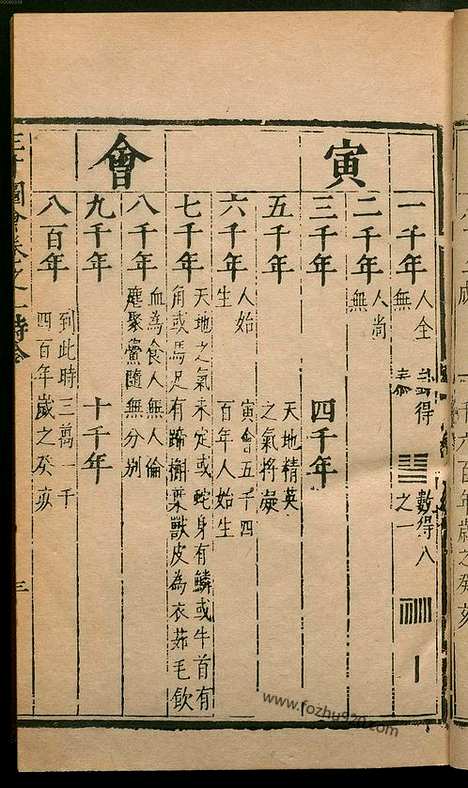 寅會
一千年 人全無 卦得泰 數得八之一
二千年 人尚無
三千年 四千年
五千年 天地精英之氣將凝
六千年 人始生 寅會五千四百年人始生
七千年 天地之氣未定或蛇身有鱗或牛首有角或馬足有蹄槲葉獸皮為衣茹毛飲
八千年 血為食人無人倫塵聚黨隨無分別
九千年 十千年
八百年 到此時三萬一千四百年歲之癸亥
三才圖會卷之一時令
三
www.fozhu920.com